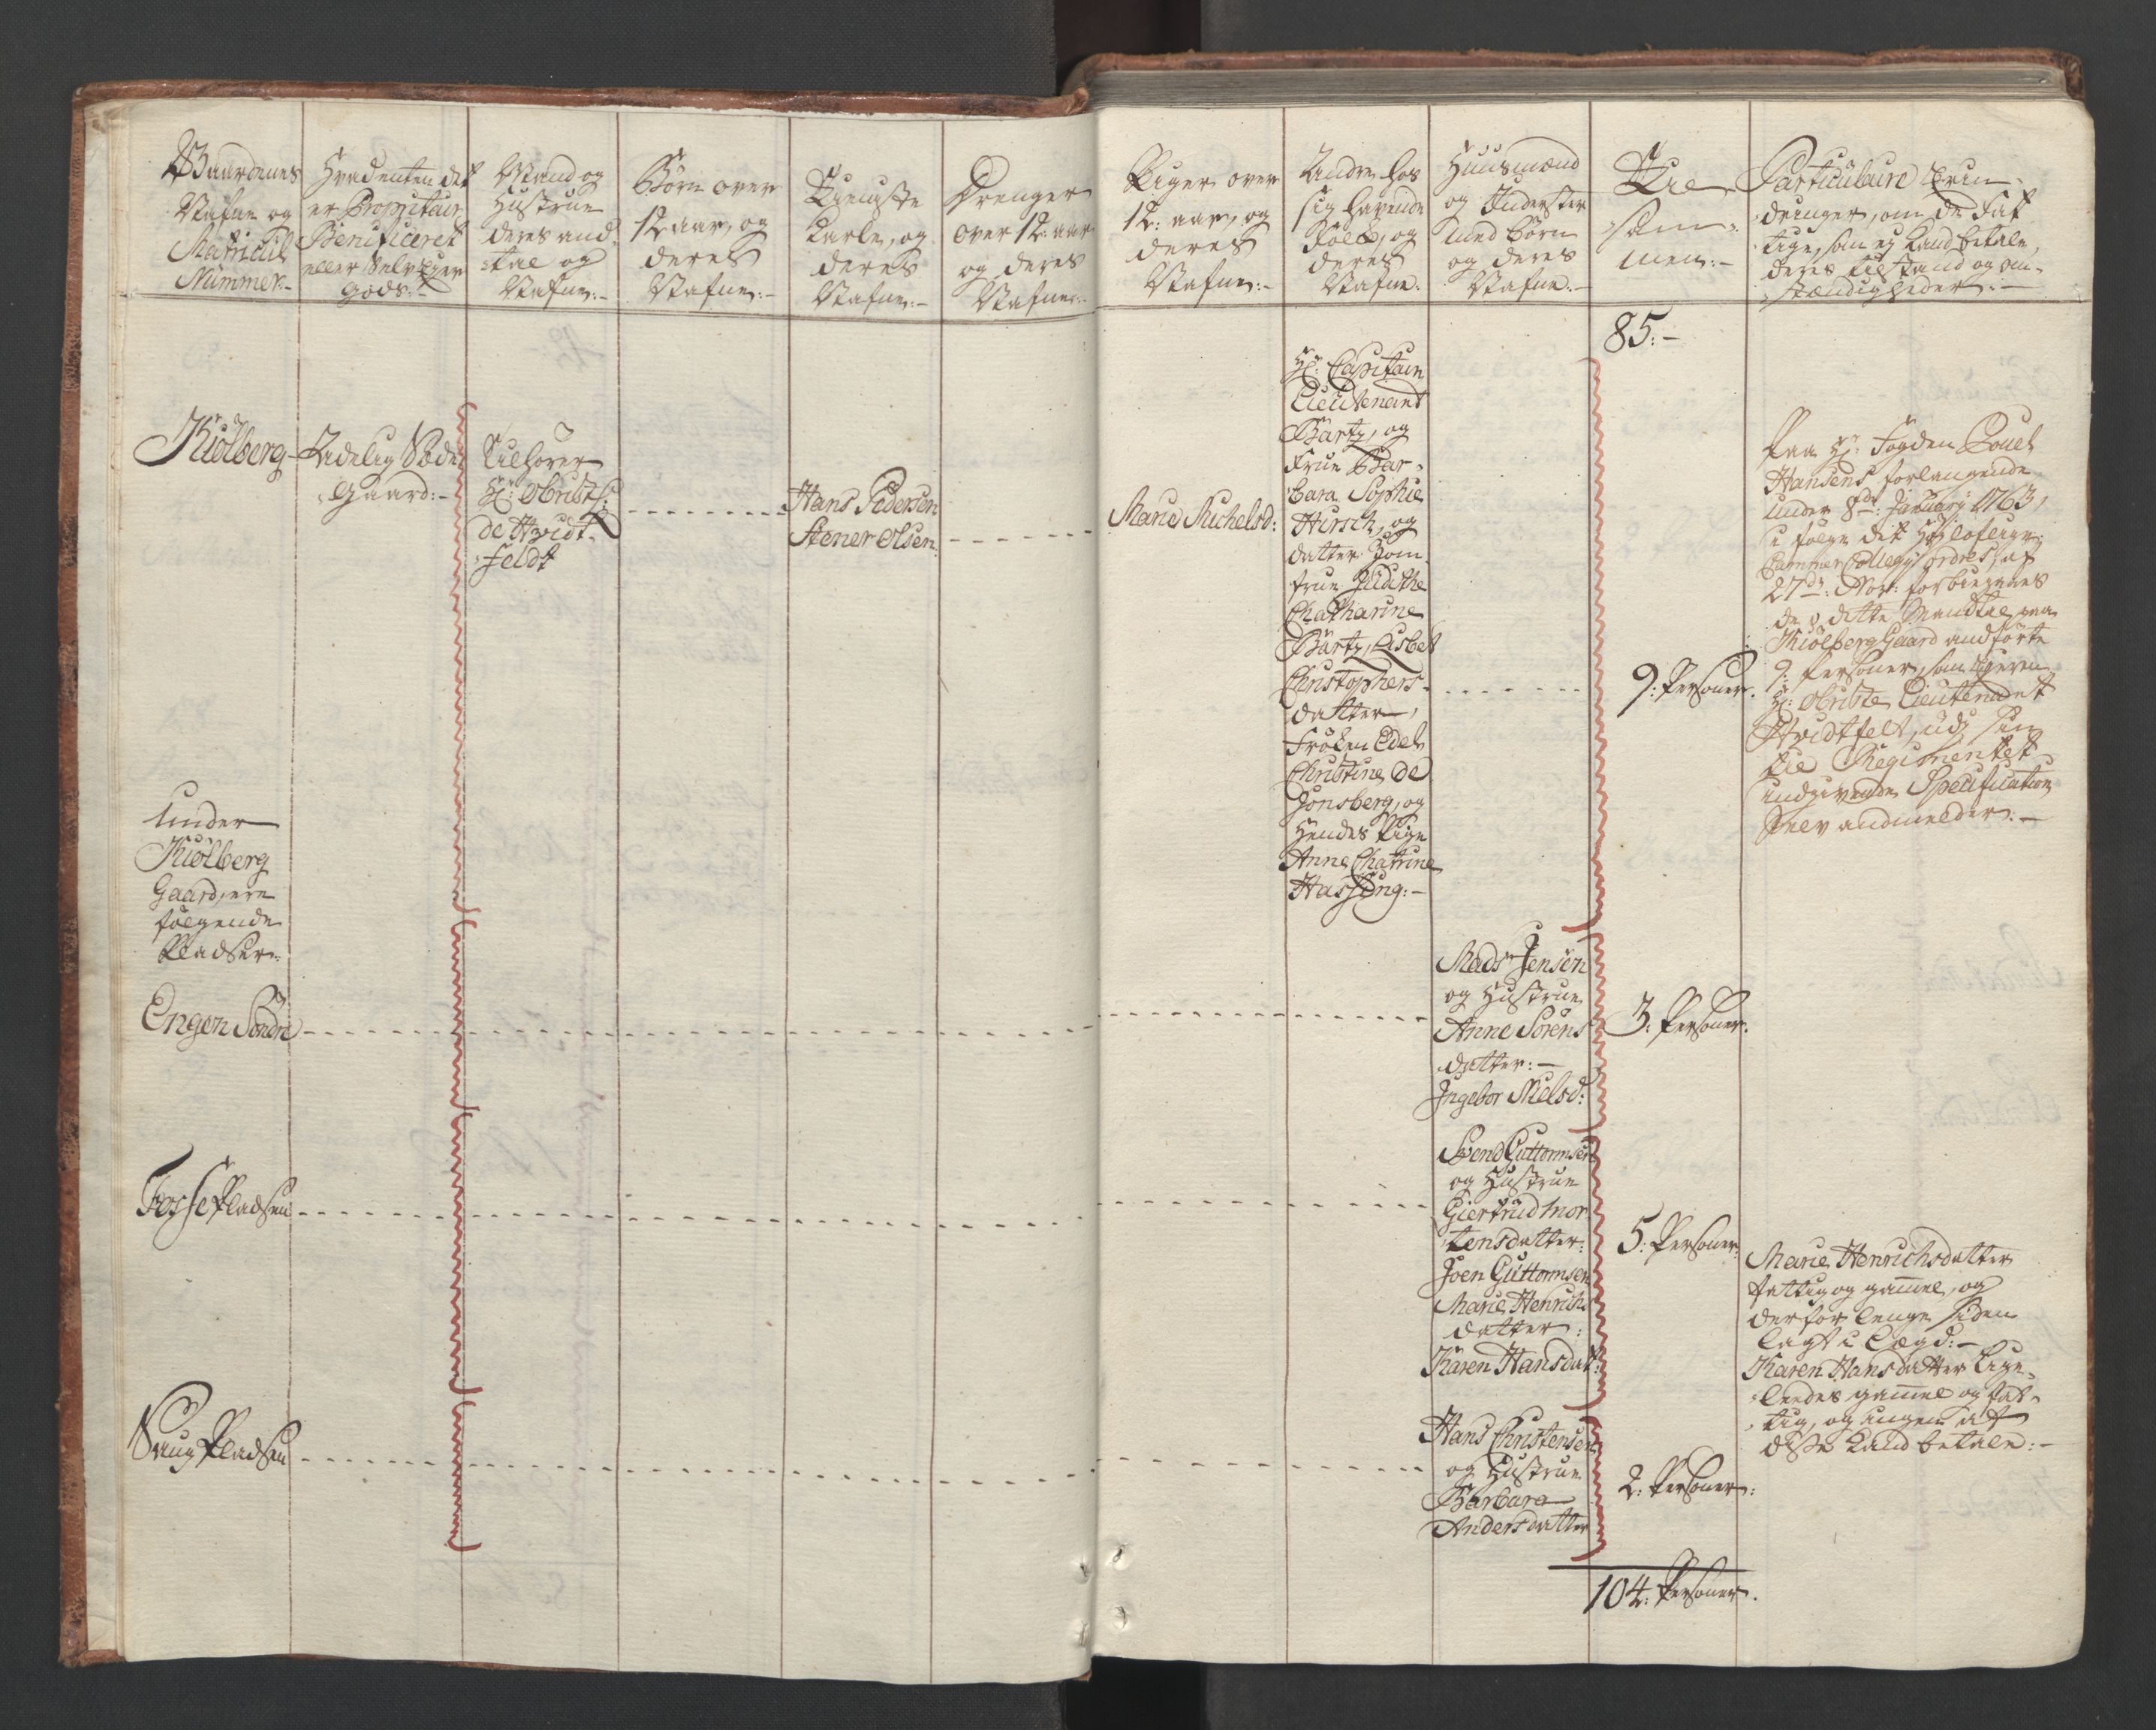 Gaardenes
Nafne og
Matricul
Nummer:-
Hvadenten det
er Propritair
Benificeret
eller Selv Eyer
Gods:-
Mand og
Hustrue
deres and-
tal og
Nafne:-
Børn over
12 aar, og
deres
Nafne:-
Tieniste
Karle, og
deres
Nafne:-
Drenger
over 12 aar
og deres
Nafne:-
Piger over
12: aar, og
deres
Nafne:-
Andre hos
sig havende
Folk, og
deres
Nafne.
Huusmænd
og Inderster
med Børn
og deres
Nafne:-
Til-
sam-
men:-
Particulaire Erin-
dringer, om de Fat-
tige, som ej kand betale,
deres tilstand og om-
stændigheder:-
85:-
Kiølberg
Adelig Sæde
Gaard:-
Tilhører
Hr: Obristl:
de Hvidt-
feldt
Hans Pedersen
Stener Olsen
Marie Michelsd:
Hr: Capitain
Lieutenant
Bartz, og
Frue Bar-
bara Sophie
Hirsch, og
datter Jom-
frue Judithe
Chatharine
Bartz, Lisbet
Christophers-
datter,
Frøken Edel
Christine de
Jonsberg, og
Hendes Pige
Anne Chatrine
Hassing:-
9: Personer.
Paa Hr: Fogden Pouel
Hansens forlangende
under 8de: January 1763,
i følge det Høylofl:
Cammer Collegy ordres, af
27de: Nov: forbiegaaes
de i dette Mandtal paa
Kiølberg Gaard andførte
9: Personer, som Eyeren
Hr: Obriste Lieutenant
Hvidtfelt, udj sin
til Regimentet
indgivende Specification
Selv andmelder:-
Under
Kiølberg
Gaard, ere
følgende
Pladser:
Engen Søndre
Mads Jensen
og Hustrue
Anne Sørens
datter:-
Ingebor Nielsd:
3: Personer.
Fosse Pladsen
Svend Guttormsen
og Hustrue
Giertrud Mor-
tensdatter:
Joen Guttormsen
Marie Henrichs
datter:
Karen Hansdat:
5: Personer:
Marie Henrichsdatter
fattig og gammel, og
derfor lenge siden
lagt i Lægd:-
Karen Hansdatter Lige-
leedes gammel og fat-
tig, og ingen af
disse kand betale:-
Saug Pladsen
Hans Christensen
og Hustrue
Barbara
Andersdatter
2: Personer:
104: Personer.